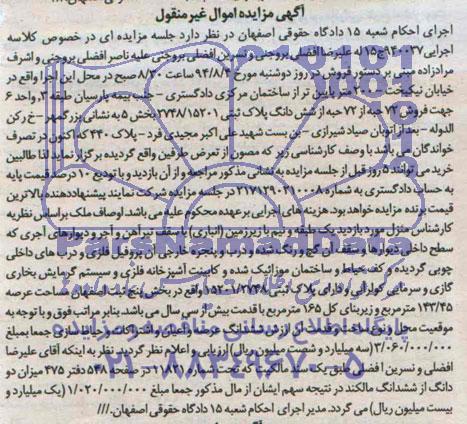 آگهی مزایده اموال غیر منقول
اجرای احکام شعبه ۱۵ دادگاه حقوقی اصفهان در نظر دارد جلسه مزایده ای در خصوص کلاسه
اجرایی ۹۴۰۰۳۷ج۱۵ له علیرضا افضلی بروجنی و نسرین افضلی بروجنی علیه ناصر افضلی بروجنی و اشرف
مرادزاده مبنی بر دستور فروش در روز دوشنبه مورخ ۹۴/۸/۴ ساعت ۸/۳۰ صبح در محل این اجرا واقع در
خیابان نیکبخت ۲۰۰ متر پایین تر از ساختمان مرکزی دادگستری – جنب بیمه پارسیان طبقه ۲ واحد ۶
جهت فروش ۷۲ حبه از ۷۲ حبه از شش دانگ پلاک ثبتی ۲۷۴۸/۱۵۲۰۱ بخش ۵ به نشانی بزرگمهر – خ رکن
الدوله – بعد از اتوبان صیاد شیرازی – بن بست شهید علی اکبر مجیدی فرد – پلاک ۴۴۰ که اکنون در تصرف
خواندگان می باشد با وصف کارشناسی زیر که مصون از تعرض طرفین واقع گردیده برگزار نماید لذا طالبین
خرید می توانند ۵ روز قبل از جلسه مزایده به نشانی مذکور مراجعه و از آن بازدید و با تودیع ۱۰ درصد قیمت پایه
به حساب دادگستری به شماره ۲۱۷۱۲۹۰۲۱۰۰۰۸ در جلسه مزایده شرکت نمایند پیشنهاد دهنده بالاترین
قیمت برنده مزایده خواهد بود. هزینه های اجرایی بر عهده محکوم علیه می باشد. اوصاف ملک براساس نظریه
کارشناس منزل مورد بازدید یک طبقه و نیم با زیرزمین (انباری) با سقف تیرآهن و آجر و دیوارهای آجری که
سطح داخلی دیوارها و سقف آن گچ و رنگ شده و درب و پنجره خارجی آن پروفیل فلزی و درب های داخلی
چوبی گردیده و کف حیاط و ساختمان موزائیک شده و کابینت آشپزخانه فلزی و سیستم گرمایش بخاری
گازی و سرمایی کولر آبی و دارای پلاک ثبتی ۲۷۴۸/۱۵۲۰۱ واقع در بخش پنج ثبت اصفهان مساحت عرصه
۱۴۳/۴۵ مترمربع و زیربنای کل ۱۶۵ مترمربع با قدمت بیش از سی سال می باشد. بنابر مراتب فوق و با توجه به
موقعیت محل و نوع ساخت و قدمت آن ارزش شش دانگ عرصه و اعیان و اشتراکات و انصاری جمعا بمبلغ
۳/۰۶۰/۰۰۰/۰۰۰ (سه میلیارد و شصت میلیون ریال) ارزیابی و اعلام نظر گردید. نظر به اینکه آقای علیرضا
افضلی و نسرین افضلی طبق یک سند مالکیت که تحت شماره در صفحه ۵۴۸ دفتر ۴۷۵ میزان دو
دانگ از ششدانگ مالکند در نتیجه سهم ایشان از مال مذکور جمعا مبلغ ۱/۰۲۰/۰۰۰/۰۰۰ (یک میلیارد و
بیست میلیون ریال) می گردد. مدیر اجرای احکام شعبه ۱۵ دادگاه حقوقی اصفهان.///
ParsNamadData